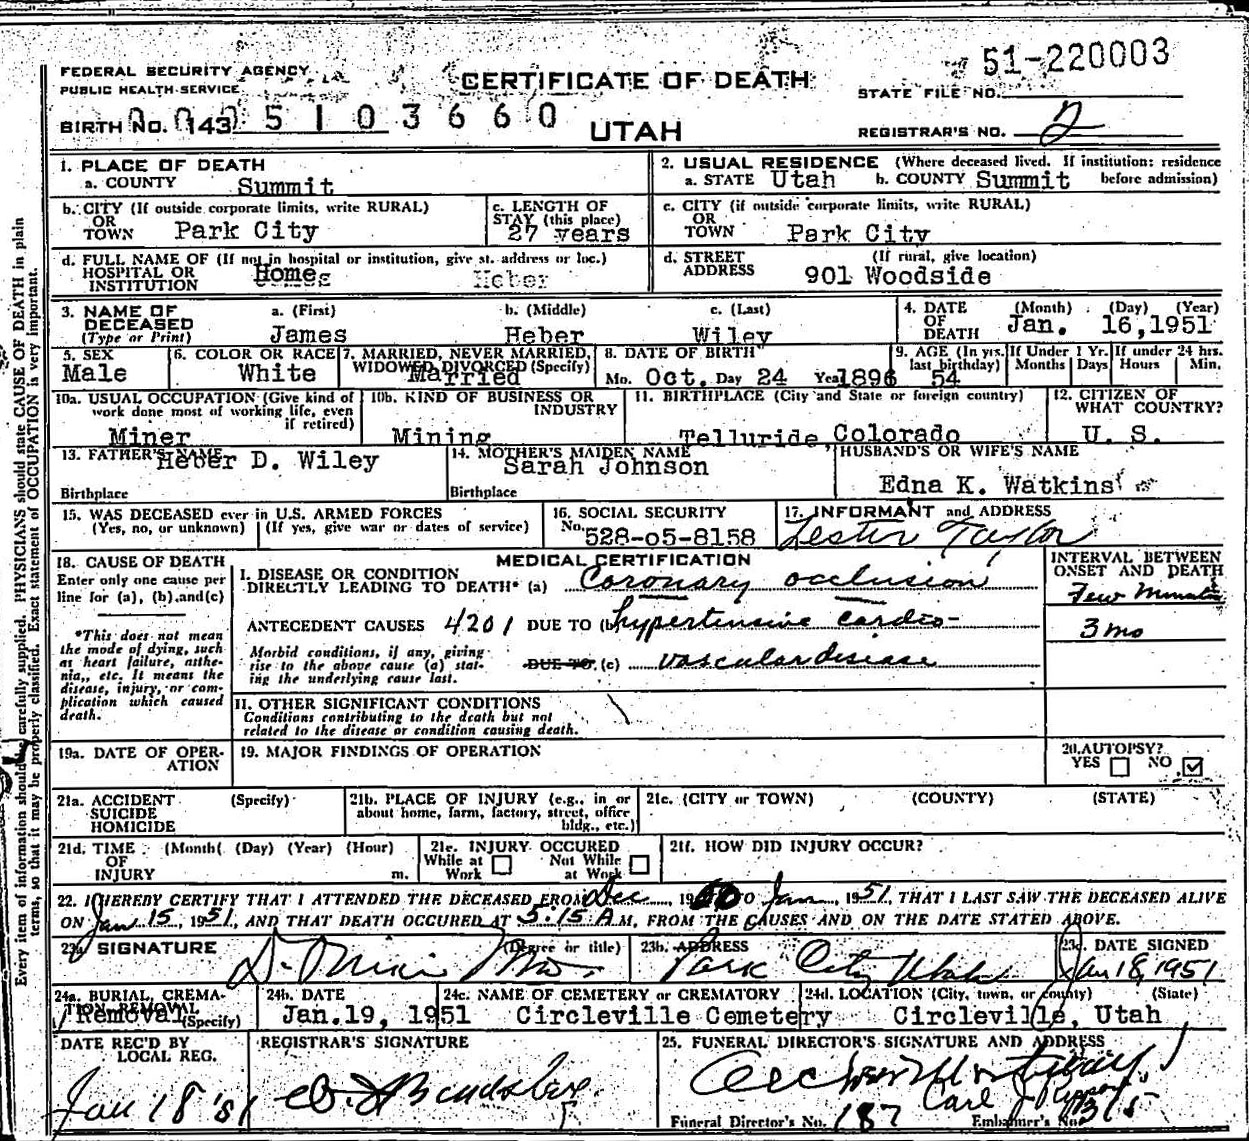 51-220003
FEDERAL SECURITY AGENCY
PUBLIC HEALTH SERVICE
CERTIFICATE OF DEATH
STATE FILE NO.
BIRTH NO. 143 5103660
UTAH
REGISTRAR'S NO. 2
1. PLACE OF DEATH
a. COUNTY Summit
2. USUAL RESIDENCE (Where deceased lived. If institution: residence before admission)
a. STATE Utah b. COUNTY Summit
b. CITY (If outside corporate limits, write RURAL) OR TOWN Park City
c. LENGTH OF STAY (this place) 27 years
c. CITY (if outside corporate limits, write RURAL) OR TOWN Park City
d. FULL NAME OF (If not in hospital or institution, give st. address or loc.) HOSPITAL OR INSTITUTION Home Heber
d. STREET ADDRESS (If rural, give location) 901 Woodside
3. NAME OF DECEASED (Type or Print)
a. (First) James
b. (Middle) Heber
c. (Last) Wiley
4. DATE OF DEATH (Month) (Day) (Year) Jan. 16,1951
5. SEX Male
6. COLOR OR RACE White
7. MARRIED, NEVER MARRIED, WIDOWED, DIVORCED (Specify) Married
8. DATE OF BIRTH Mo. Oct. Day 24 Year 1896
9. AGE (In yrs. last birthday) 54
If Under 1 Yr. Months Days
If under 24 hrs. Hours Min.
10a. USUAL OCCUPATION (Give kind of work done most of working life, even if retired) Miner
10b. KIND OF BUSINESS OR INDUSTRY Mining
11. BIRTHPLACE (City and State or foreign country) Telluride, Colorado
12. CITIZEN OF WHAT COUNTRY? U. S.
13. FATHER'S NAME Heber D. Wiley
Birthplace
14. MOTHER'S MAIDEN NAME Sarah Johnson
Birthplace
HUSBAND'S OR WIFE'S NAME Edna K. Watkins
15. WAS DECEASED ever in U.S. ARMED FORCES
(Yes, no, or unknown) (If yes, give war or dates of service)
16. SOCIAL SECURITY No. 528-05-8158
17. INFORMANT and ADDRESS Lester Taylor
18. CAUSE OF DEATH
Enter only one cause per line for (a), (b).and(c)
*This does not mean the mode of dying, such as heart failure, asthenia,, etc. It means the disease, injury, or complication which caused death.
MEDICAL CERTIFICATION
INTERVAL BETWEEN ONSET AND DEATH
I. DISEASE OR CONDITION DIRECTLY LEADING TO DEATH* (a) Coronary occlusion
Few Minutes
ANTECEDENT CAUSES 4201 DUE TO (b) hypertensive cardio-
3 mo
Morbid conditions, if any, giving rise to the above cause (a) stating the underlying cause last.
DUE TO (c) vascular disease
II. OTHER SIGNIFICANT CONDITIONS
Conditions contributing to the death but not related to the disease or condition causing death.
19a. DATE OF OPERATION
19. MAJOR FINDINGS OF OPERATION
20. AUTOPSY? YES NO
21a. ACCIDENT SUICIDE HOMICIDE (Specify)
21b. PLACE OF INJURY (e.g., in or about home, farm, factory, street, office bldg., etc.)
21c. (CITY or TOWN) (COUNTY) (STATE)
21d. TIME OF INJURY (Month( (Day) (Year) (Hour) m.
21e. INJURY OCCURED While at Work Not While at Work
21f. HOW DID INJURY OCCUR?
22. I HEREBY CERTIFY THAT I ATTENDED THE DECEASED FROM Dec , 1950 TO Jan 1951, THAT I LAST SAW THE DECEASED ALIVE
ON Jan 15, 1951, AND THAT DEATH OCCURED AT 5:15 A M, FROM THE CAUSES AND ON THE DATE STATED ABOVE.
23a. SIGNATURE (Degree or title)
23b. ADDRESS Park City Utah
23c. DATE SIGNED Jan 18, 1951
24a. BURIAL, CREMATION, REMOVAL (Specify) Removal
24b. DATE Jan.19, 1951
24c. NAME OF CEMETERY or CREMATORY Circleville Cemetery
24d. LOCATION (City, town, or county) (State) Circleville, Utah
DATE REC'D BY LOCAL REG. Jan 18 '51
REGISTRAR'S SIGNATURE
25. FUNERAL DIRECTOR'S SIGNATURE AND ADDRESS
Carl J
Funeral Director's No. 187 Embalmer's No. 315
Every item of information should be carefully supplied. PHYSICIANS should state CAUSE OF DEATH in plain
terms, so that it may be properly classified. Exact statement of OCCUPATION is very important.